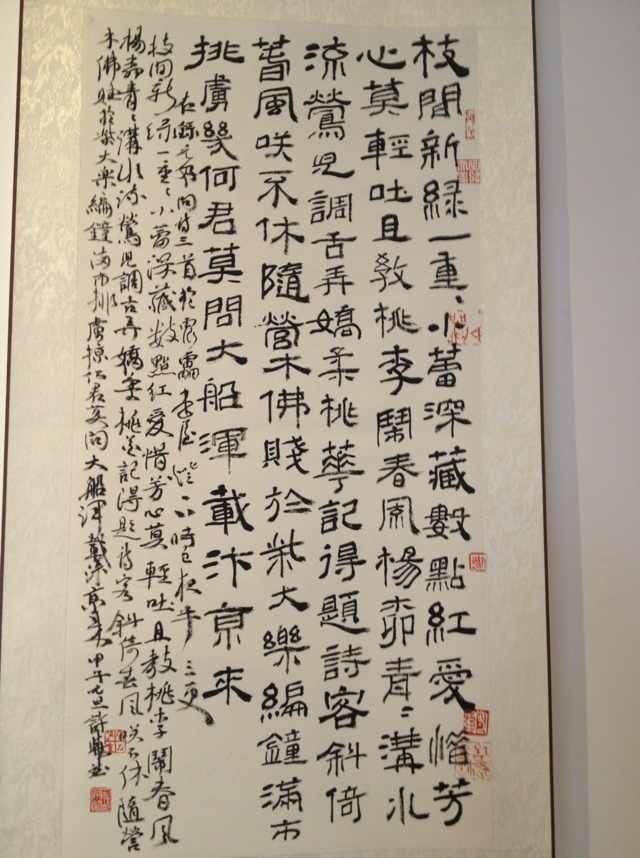 枝間新綠一重〻小蕾深藏數點紅愛惜芳
心莫輕吐且教桃李鬧春風楊柳青〻溝水
流鶯兒調舌弄嬌柔桃華記得題詩客斜倚
春風咲不休隨營木佛賤於柴大樂編鐘滿市
排虜幾何君莫問大船渾載汴京來
右錄元好問詩三首於書屋燈下時已夜半三更
枝間新綠一重〻小蕾深藏數點紅愛惜芳心莫輕吐且教桃李鬧春風
楊柳青〻溝水流鶯兒調舌弄嬌柔桃花記得題詩客斜倚春風咲不休隨營
木佛賤於柴大樂編鐘滿市排虜掠君莫問大船渾載汴京來甲午元旦許